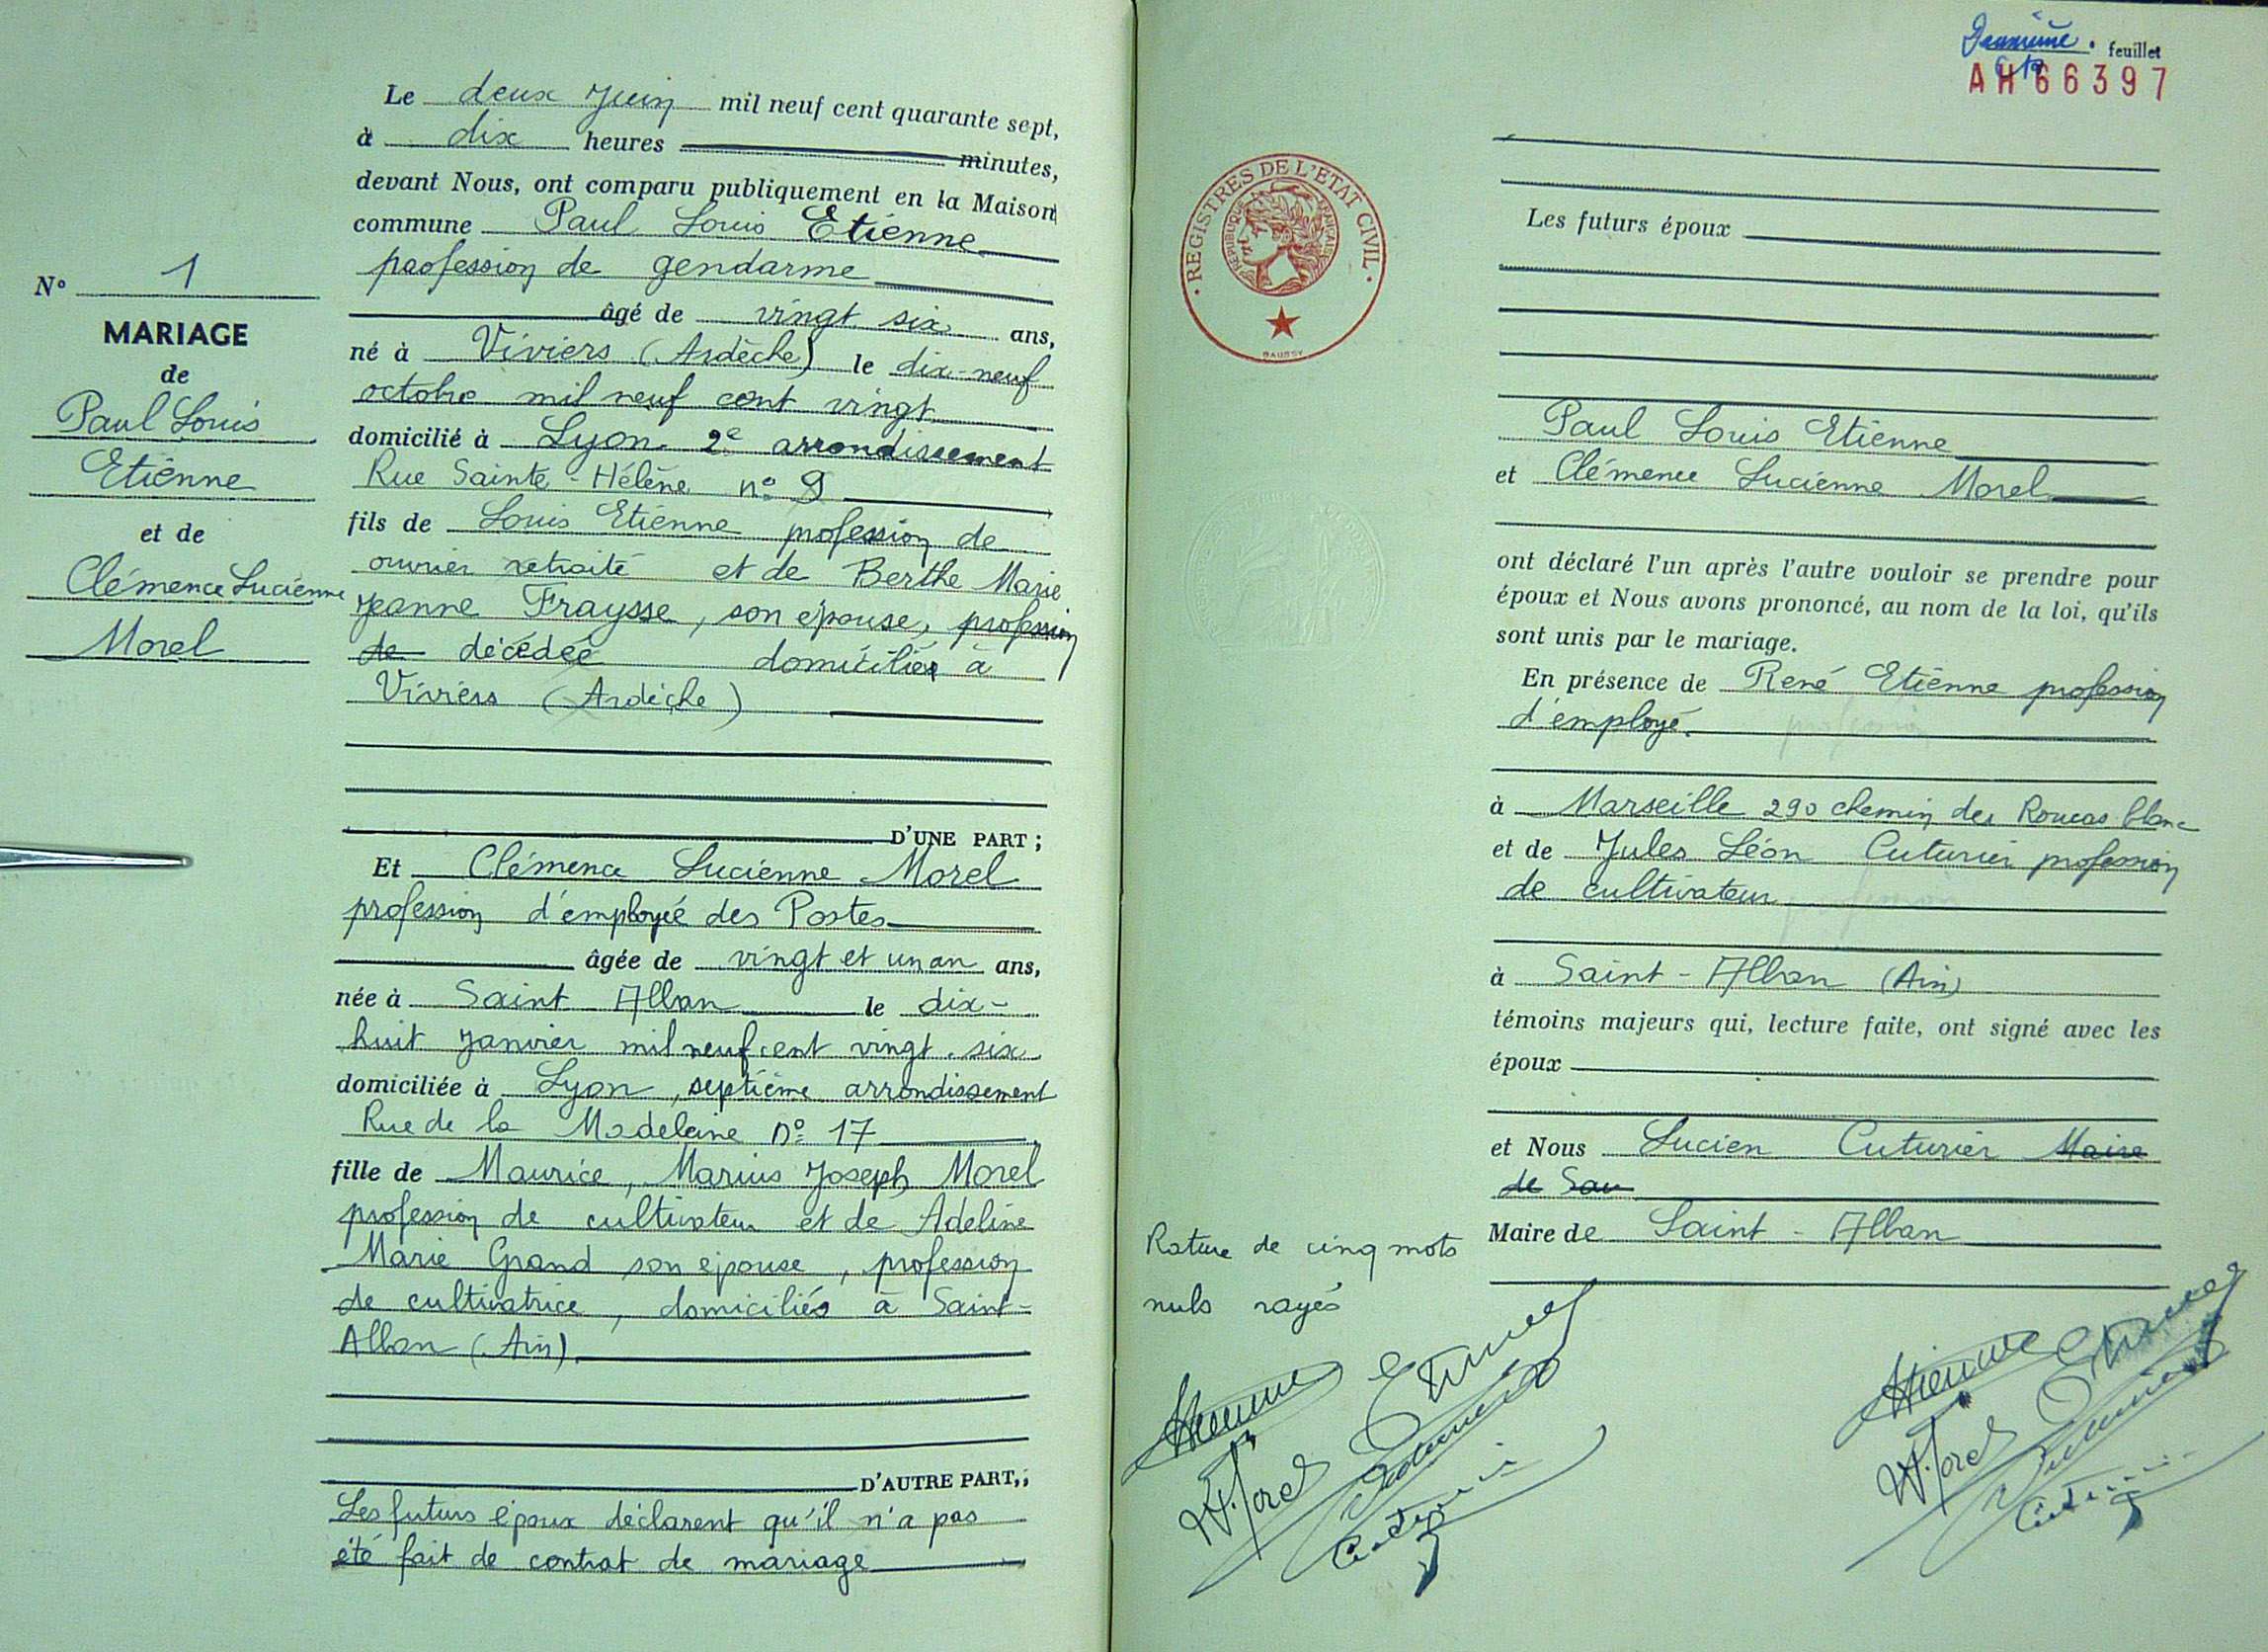 N° 1
MARIAGE
de
Paul Louis
Etienne
et de
Clémence Lucienne
Morel
Le deux Juin mil neuf cent quarante sept,
à dix heures minutes,
devant Nous, ont comparu publiquement en la Maison
commune Paul Louis Etienne
profession de gendarme
âgé de vingt six ans,
né à Viviers (Ardèche) le dix-neuf
octobre mil neuf cent vingt
domicilié à Lyon 2e arrondissement
Rue Sainte-Hélène n° 9
fils de Louis Etienne profession de
ouvrier retraité et de Berthe Marie
Jeanne Fraysse, son épouse, profession
de décédée domicilié à
Viviers (Ardèche)
D'UNE PART ;
Et Clémence Lucienne Morel
profession d'employée des Postes
âgée de vingt et un an ans,
née à Saint Alban le dix-
huit Janvier mil neuf cent vingt-six
domiciliée à Lyon, septième arrondissement
Rue de la Madeleine n° 17
fille de Maurice, Marius Joseph Morel
profession de cultivateur et de Adeline
Marie Grand son épouse, profession
de cultivatrice, domiciliés à Saint-
Alban (Ain).
D'AUTRE PART,;
Les futurs époux déclarent qu'il n'a pas
été fait de contrat de mariage
Deuxième feuillet
AH 66397
REGISTRES DE L'ETAT CIVIL
REPUBLIQUE FRANÇAISE
Les futurs époux
Paul Louis Etienne
et Clémence Lucienne Morel
ont déclaré l'un après l'autre vouloir se prendre pour
époux et Nous avons prononcé, au nom de la loi, qu'ils
sont unis par le mariage.
En présence de René Etienne profession
d'employé.
à Marseille 290 chemin des Roucas blanc
et de Jules Léon Cuturier profession
de cultivateur
à Saint-Alban (Ain)
témoins majeurs qui, lecture faite, ont signé avec les
époux
et Nous Lucien Cuturier Maire
de Sau
Maire de Saint-Alban
Rature de cinq mots
nuls rayés
Etienne
Morel
Cuturier
Etienne
Morel